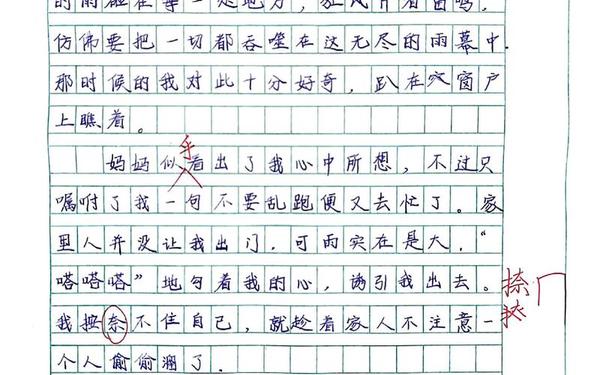 的雨砸在每一处地方,狂风卷着雷鸣,
仿佛要把一切都吞噬在这无尽的雨幕中.
那时候的我对此十分好奇,趴在窗户
上瞧着。
乎
妈妈似看出了我心中所想,不过只
嘱咐了我一句不要乱跑便又去忙了。家
里人并没让我出门,可雨实在是大,“
嗒嗒嗒”地勾着我的心,诱引我出去。
捺
我按奈不住自己,就趁着家人不注意一
个人偷偷溜了.